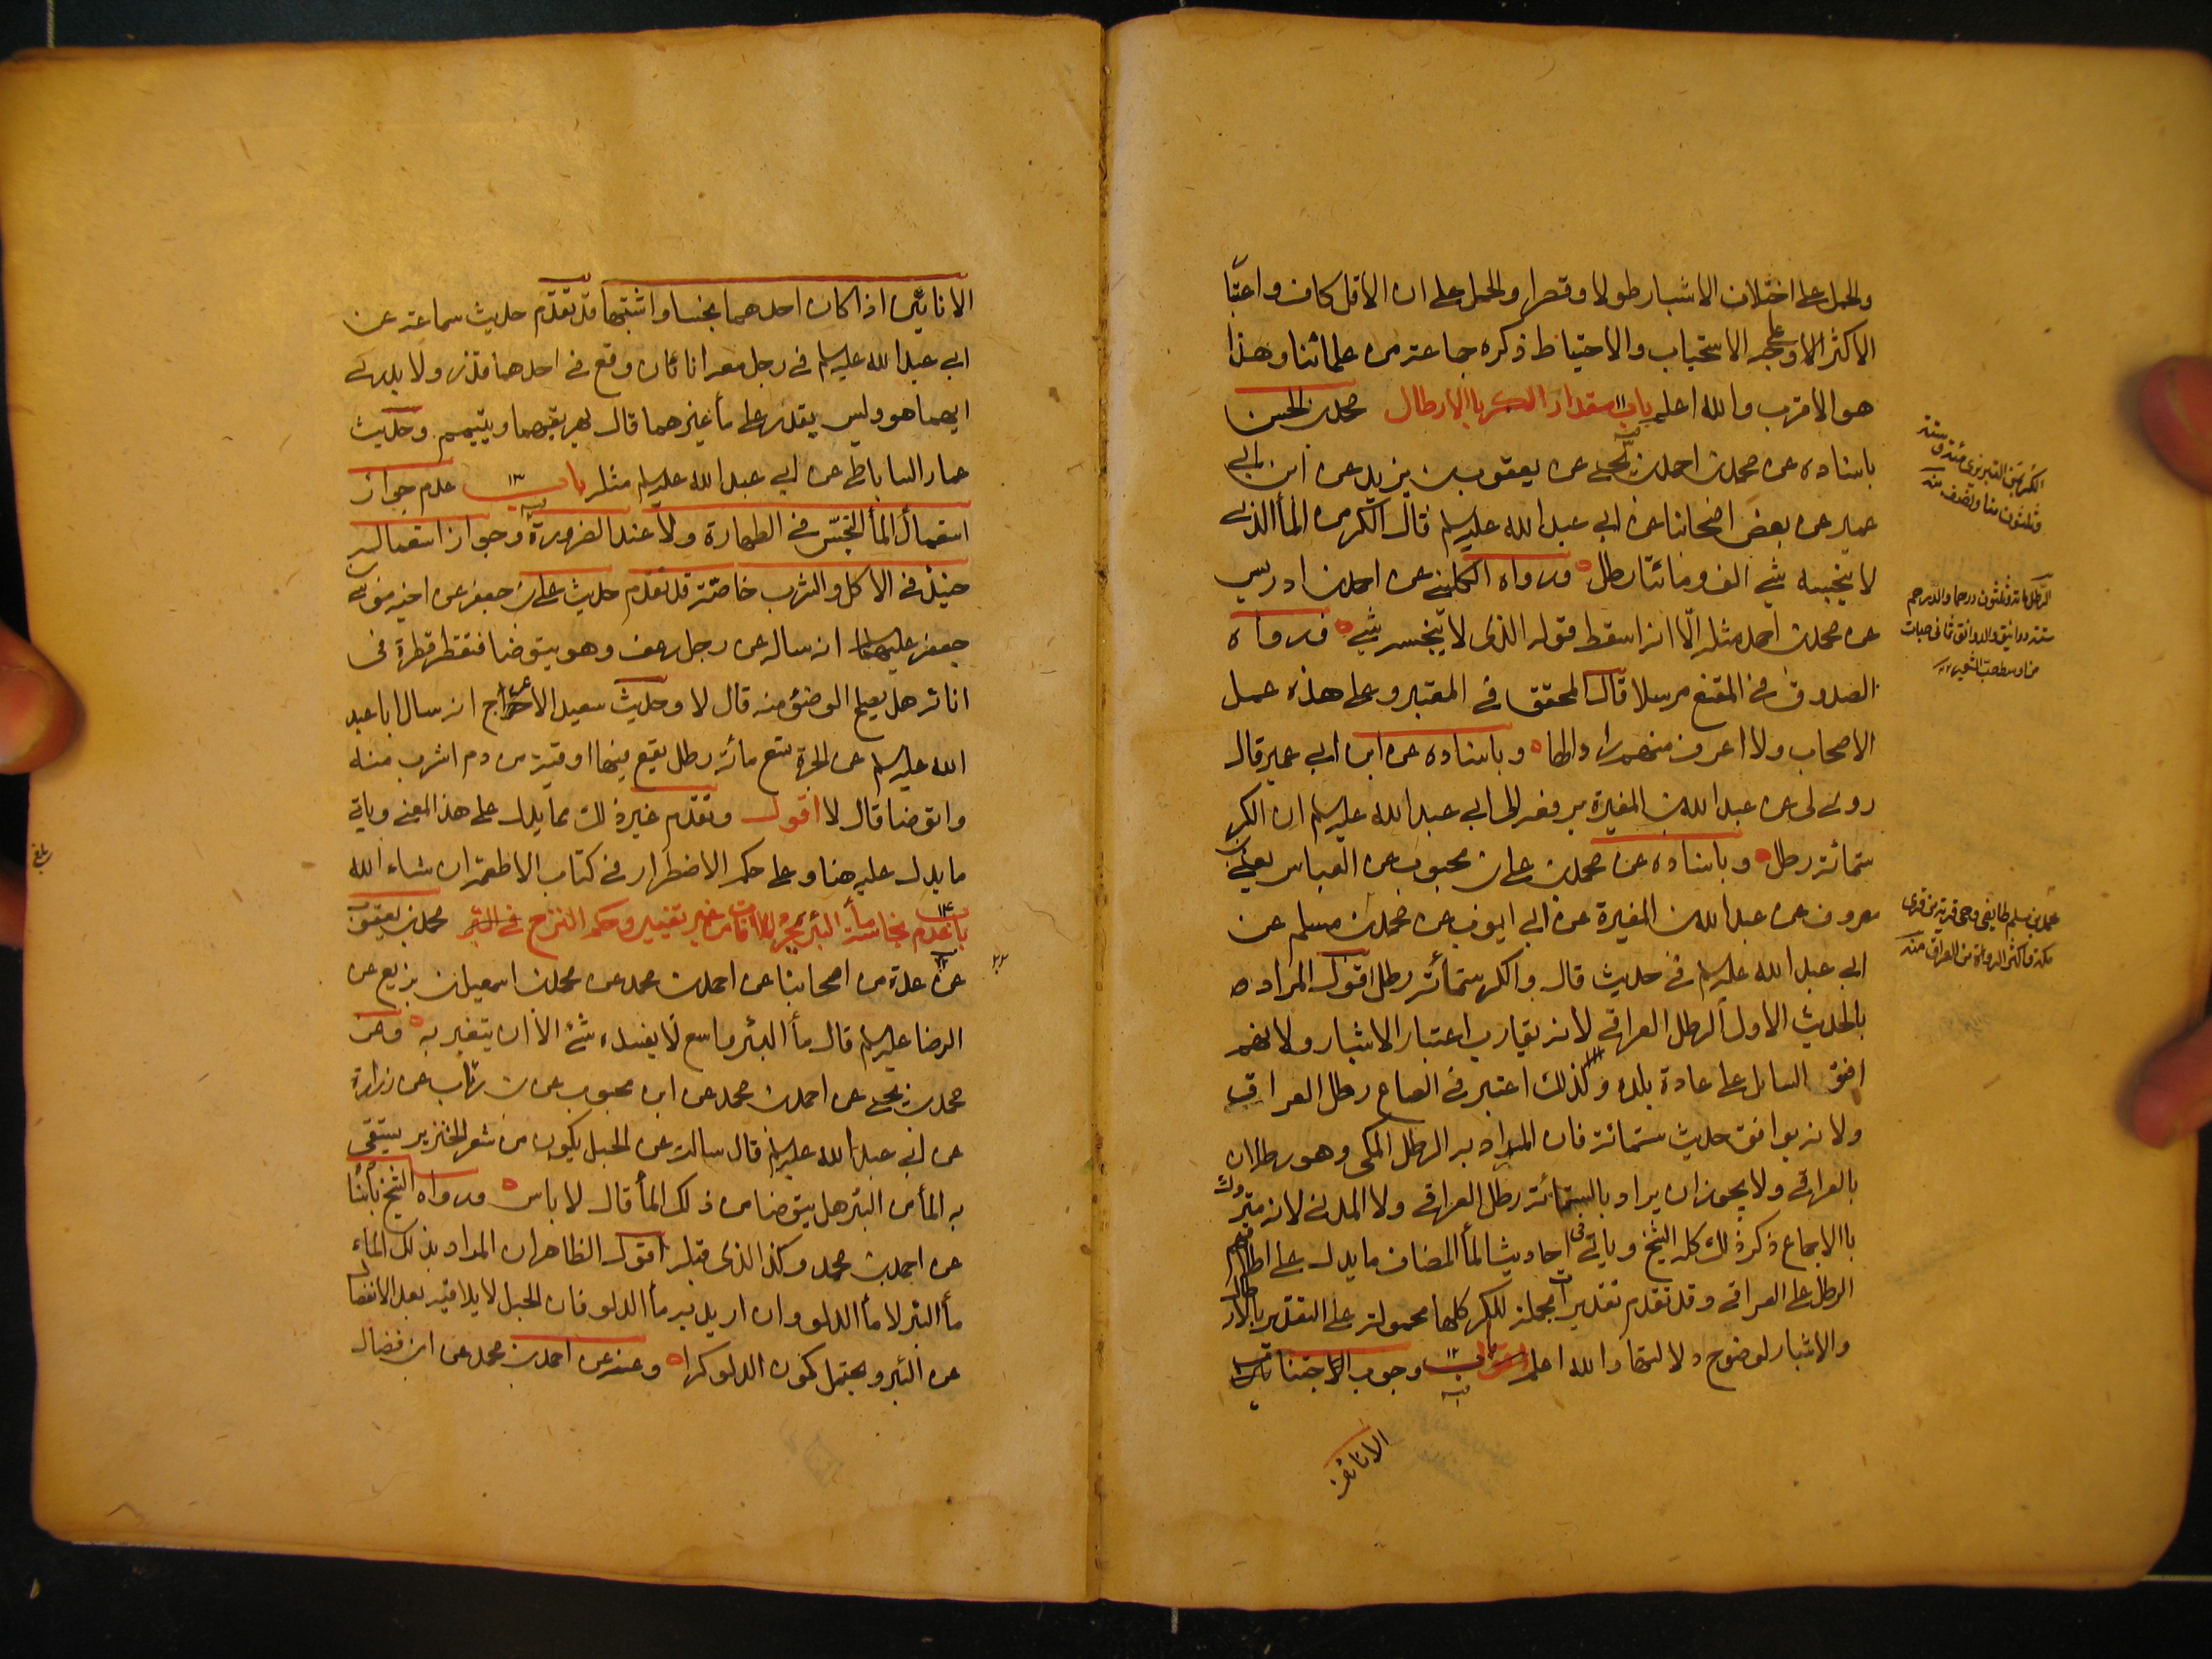 والحمل على اختلاف الاشبار طولا وقصرا والحمل على ان الاقل كاف واعتبار
الاكثر على وجه الاستحباب والاحتياط ذكره جماعة من علمائنا وهذا
هو الاقرب والله اعلم باب ١١ مقدار الكر بالارطال محمد بن الحسن
باسناده عن محمد بن احمد بن يحيى عن يعقوب بن يزيد عن ابن ابي
عمير عن بعض اصحابنا عن ابي عبد الله عليه السلم قال الكر من الماء الذي
لا ينجسه شي الف ومائتا رطل ورواه الكليني عن احمد بن ادريس
عن محمد بن احمد مثله الّا انه اسقط قوله الذي لا ينجسه شي ورواه
الصدوق في المقنع مرسلا قال المحقق في المعتبر وعلى هذه عمل
الاصحاب ولا اعرف منهم رادا لها وباسناده عن ابن ابي عمير قال
روى لى عن عبد الله بن المغيرة يرفعه الى ابي عبد الله عليه السلم ان الكر
ستمائة رطل وباسناده عن محمد بن على بن محبوب عن العباس يعني ابن
معروف عن عبد الله بن المغيرة عن ابي ايوب عن محمد بن مسلم عن
ابي عبد الله عليه السلم في حديث قال والكر ستمأة رطل اقول المراد
بالحديث الاول الرطل العراقى لانه يقارب اعتبار الاشبار ولانهم
افتوا السائل على عادة بلده وكذلك اعتبر في الصاع رطل العراق
ولانه يوافق حديث ستمائة فان المراد به الرطل المكى وهو رطلان
بالعراقى ولا يجوز ان يراد بالستمائة رطل العراقى ولا المدنى لانه متروك
بالاجماع ذكر ذلك كله الشيخ وياتي في احاديث الماء المضاف ما يدل على اطلاقهم
الرطل على العراقى وقد تقدم تقديرات مجملة للكر كلها محمولة على التقدير بالارطال
والاشبار لوضوح دلالتهما والله اعلم باب ١٢ وجوب اجتناب
الانائين
الرطل مائة وثلثون درهما والدرهم
ستة دوانيق والدوانق ثمانى حبات
من اوسط حب الشعير
محمد بن مسلم طايفى وهى قرية من قرى
مكة واكثر الرواة من العراق منه
الانائين اذا كان احدهما نجسا واشتبها قد تقدّم حديث سماعة عن
ابي عبد الله عليه السلم في رجل معه اناءان وقع في احدهما قذر ولا يدرى
ايهما هو وليس يقدر على ماء غيرهما قال يهريقهما ويتيمم وحديث
عمار الساباطي عن ابي عبد الله عليه السلم مثله باب ١٣ عدم جواز
استعمال الماء النجس في الطهارة ولا عند الضرورة وجواز استعماله
حينئذ في الاكل والشرب خاصّة قد تقدّم حديث على بن جعفر عن اخيه موسى بن
جعفر عليهما السلم انه ساله عن رجل رعف وهو يتوضا فتقطر قطرة في
انائه هل يصلح الوضوء منه قال لا وحديث سعيد الاعرج انه سال ابا عبد
الله عليه السلم عن الجرة تسع مائة رطل يقع فيها اوقية من دم اشرب منه
واتوضا قال لا اقول وتقدم غير ذلك مما يدل على هذا المعنى وياتي
ما يدل عليه هنا وعلى حكم الاضطرار في كتاب الاطعمة ان شاء الله
باب ١٤ عدم نجاسة ماء البئر بمجرد الملاقات من غير تغيير وحكم النزح محمد بن يعقوب
عن عدة من اصحابنا عن احمد بن محمد عن محمد بن اسمعيل بن بزيع عن
الرضا عليه السلم قال ماء البئر واسع لا يفسده شئ الا ان يتغير به وعن
محمد بن يحيى عن احمد بن محمد عن ابن محبوب عن ابن رئاب عن زرارة
عن ابي عبد الله عليه السلم قال سالته عن الحبل يكون من شعر الخنزير يستقى
به الماء من البئر هل يتوضا من ذلك الماء قال لا باس ورواه الشيخ باسناده
عن احمد بن محمد وكذا الذى قبله اقول الظاهر ان المراد بذلك الماء
ماء البئر لا ماء الدلو وان اريد به ماء الدلو فان الحبل لا يلاقيه بعد الانفصال
عن البئر ويحتمل كون الدلو كرا وعنه عن احمد بن محمد عن ابن فضال